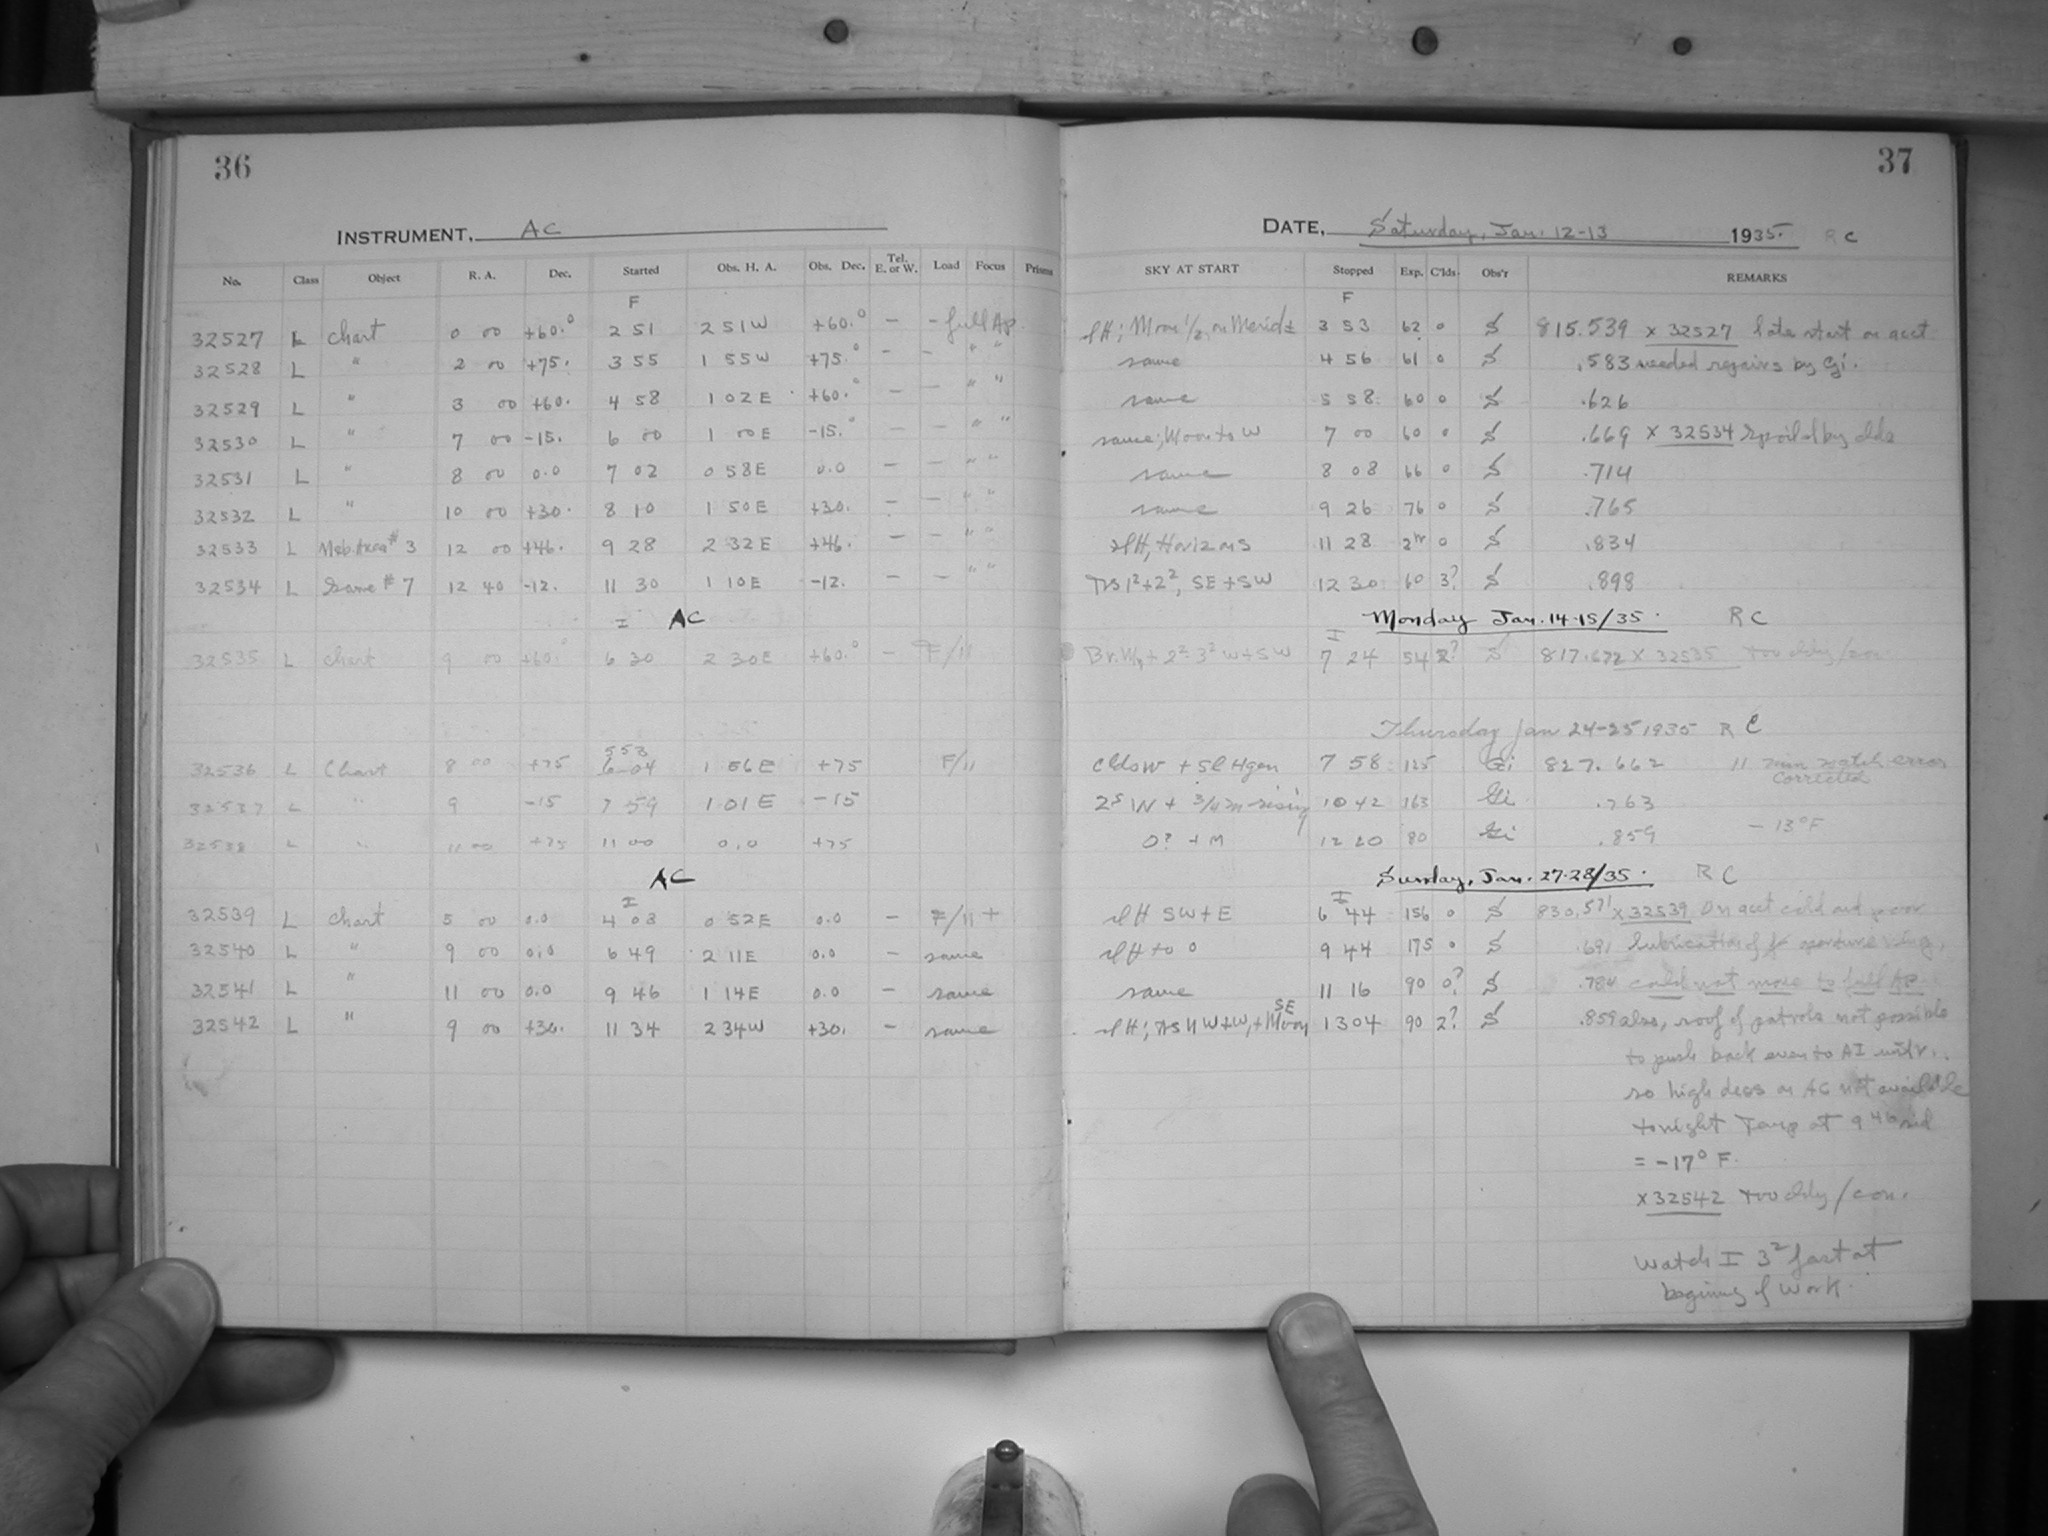 36
INSTRUMENT, AC
No. Class Object R. A. Dec. Started Obs. H. A. Obs. Dec. Tel. E. or W. Load Focus Prisms
F
32527 L Chart 0 00 +60.° 2 51 2 51W +60.° — — full Ap.
32528 L " 2 00 +75. 3 55 1 55W +75.° — — " "
32529 L " 3 00 +60. 4 58 1 02E +60.° — — " "
32530 L " 7 00 -15. 6 00 1 00E -15.° — — " "
32531 L " 8 00 0.0 7 02 0 58E 0.0 — — " "
32532 L " 10 00 +30. 8 10 1 50E +30. — — " "
32533 L Neb. Area # 3 12 00 +46. 9 28 2 32E +46. — — " "
32534 L Same # 7 12 40 -12. 11 30 1 10E -12. — — " "
I AC
32535 L Chart 9 00 +60.° 6 30 2 30E +60.° — F/11
553
32536 L Chart 8 00 +75 6 04 1 56E +75 F/11
32537 L " 9 -15 7 59 1 01E -15
32538 L " 11 00 +75 11 00 0.0 +75
AC
I
32539 L Chart 5 00 0.0 4 08 0 52E 0.0 — F/11 +
32540 L " 9 00 0.0 6 49 2 11E 0.0 — same
32541 L " 11 00 0.0 9 46 1 14E 0.0 — same
32542 L " 9 00 +30. 11 34 2 34W +30. — same
37
DATE, Saturday, Jan. 12-13 1935. R C
SKY AT START Stopped Exp. C'lds Obs'r REMARKS
F
sl H; Moon 1/2, on Merid± 3 53 62 0 S 815.539 x 32527 late start on acct
same 4 56 61 0 S .583 needed repairs by Gi.
same 5 58 60 0 S .626
same; Moon to W 7 00 60 0 S .669 x 32534 spoiled by clds
same 8 08 66 0 S .714
same 9 26 76 0 S .765
sl H, Horizons 11 28 2hr 0 S .834
1²+2², SE+SW 12 30 60 3? S .898
Monday Jan. 14-15/35. R C
I
+ 2² 3² W+SW 7 24 54 2? S 817.672 x 32535 too cldy/con.
Thursday Jan 24-25 1935 R C
clds W + Sl H gen 7 58 125 Gi 827.662 11 min watch error
corrected
2s W + 3/4 m rising 10 42 163 Gi .763
0? + M 12 20 80 Gi .859 -13°F
Sunday, Jan. 27-28/35. R C
I
sl H SW+E 6 44 156 0 S 830.571 x 32539 On acct cold and poor
sl H to 0 9 44 175 0 S .691 lubrication of aperture ring,
same 11 16 90 0? S .784 could not move to full Ap.
SE
sl H; W+W, + Moon 13 04 90 2? S .859 also, roof of patrols not possible
to push back even to AI
so high decs on AC not available
tonight Temp at 9 46 sid
= -17° F.
x 32542 too cldy/con.
Watch I 3² fast at
begining of work.